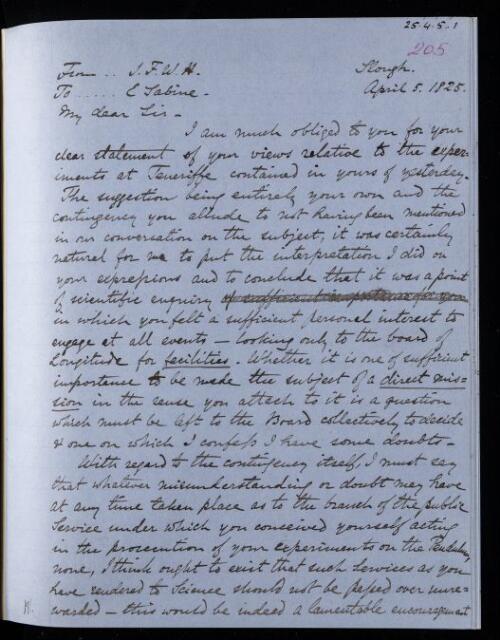 25·4·5·1
205
From .. J. F. W. H.
Slough.
To ..... E Sabine -
April 5. 1825.
My dear Sir -
I am much obliged to you for your
clear statement of your views relative to the exper-
iments at Teneriffe contained in yours of yesterday.
The suggestion being entirely your own and the
contingency you allude to not having been mentioned
in our conversation on the subject, it was certainly
natural for me to put the interpretation I did on
your expressions and to conclude that it was a point
of scientific enquiry of sufficient importance for you
in which you felt a sufficient personal interest to
engage at all events - looking only to the board of
Longitude for facilities. Whether it is one of sufficient
importance to be made the subject of a direct mis=
sion in the cause you attach to it is a question
which must be left to the Board collectively to decide
& one on which I confess I have some doubts -
With regard to the contingency itself, I must say
that whatever misunderstanding or doubt may have
at any time taken place as to the branch of the public
Service under which you conceived yourself acting
in the prosecution of your experiments on the Pendulum,
none, I think ought to exist that such services as you
have rendered to Science should not be passed over unre=
warded - this would be indeed a lamentable encouragement